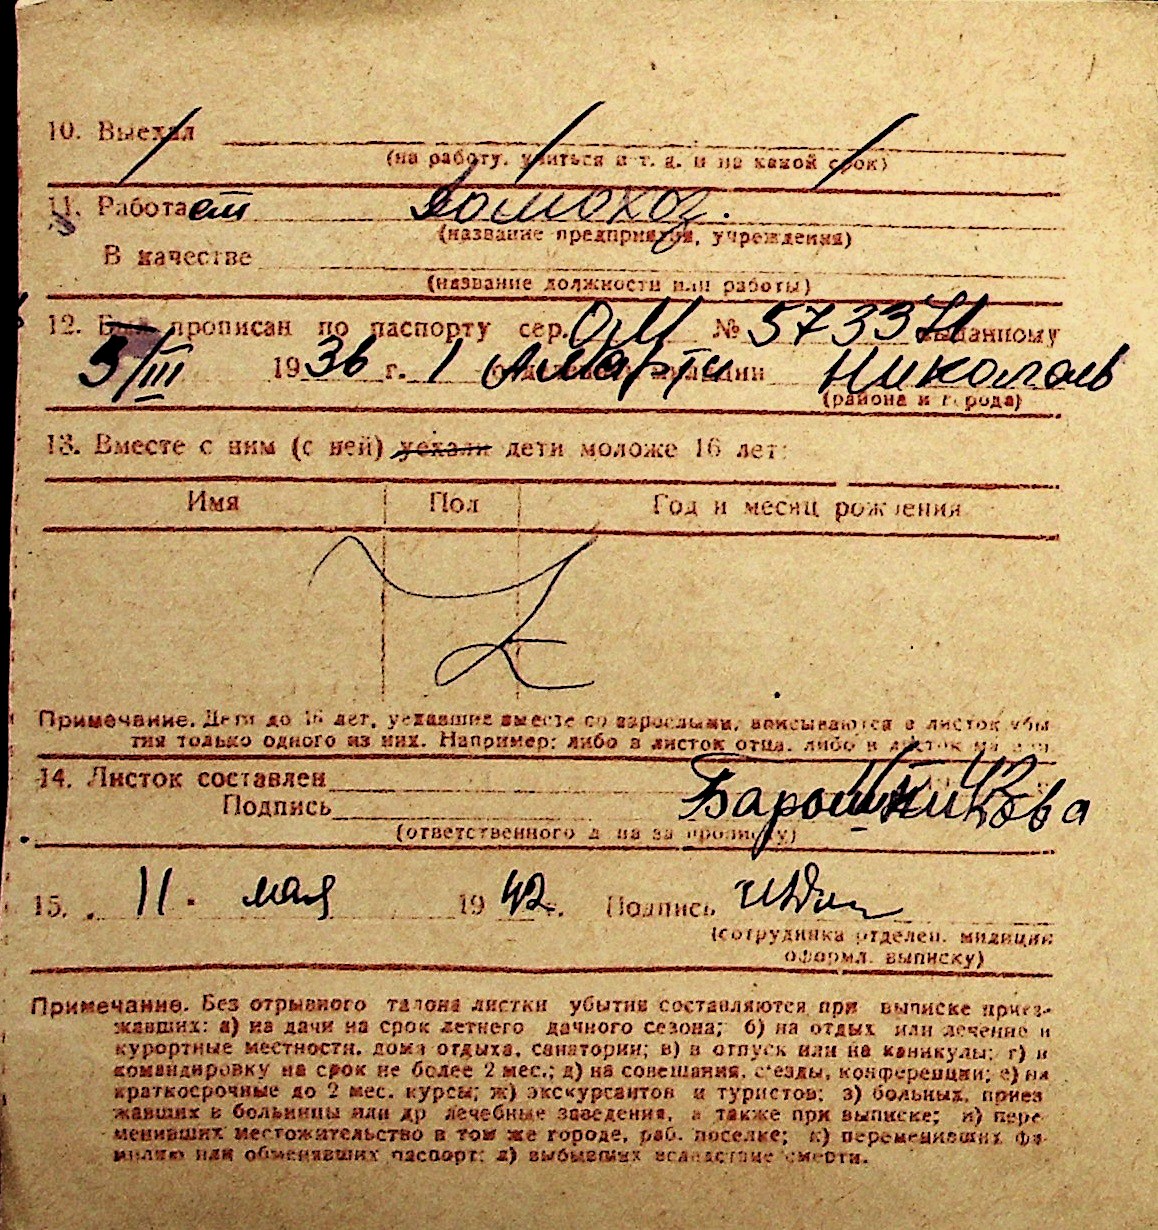 10. Выехал
(на работу, учиться и т. д. и на какой срок)
11. Работает Домохоз.
(название предприятия, учреждения)
В качестве
(название должности или работы)
12. Был прописан по паспорту сер. ОМ № 573371 выданному
3/III 1936 г. 1 милиции Николаев
(района и города)
13. Вместе с ним (с ней) уехали дети моложе 16 лет:
Имя Пол Год и месяц рождения
Примечание. Дети до 16 лет, уехавшие вместе со взрослыми, вписываются в листок убы-
тия только одного из них. Например: либо в листок отца, либо в листок матери.
14. Листок составлен
Подпись
(ответственного лица за прописку)
15. 11. мая 1942 г. Подпись
(сотрудника отделен. милиции
оформл. выписку)
Примечание. Без отрывного талона листки убытия составляются при выписке приез-
жавших: а) на дачи на срок летнего дачного сезона; б) на отдых или лечение в
курортные местности, дома отдыха, санатории; в) в отпуск или на каникулы; г) в
командировку на срок не более 2 мес.; д) на совещания, с'езды, конференции; е) на
краткосрочные до 2 мес. курсы; ж) экскурсантов и туристов; з) больных, приез-
жавших в больницы или др лечебные заведения, а также при выписке; и) пере-
менивших местожительство в том же городе, раб. поселке; к) переменивших фа-
милию или обменявших паспорт; л) выбывших вследствие смерти.